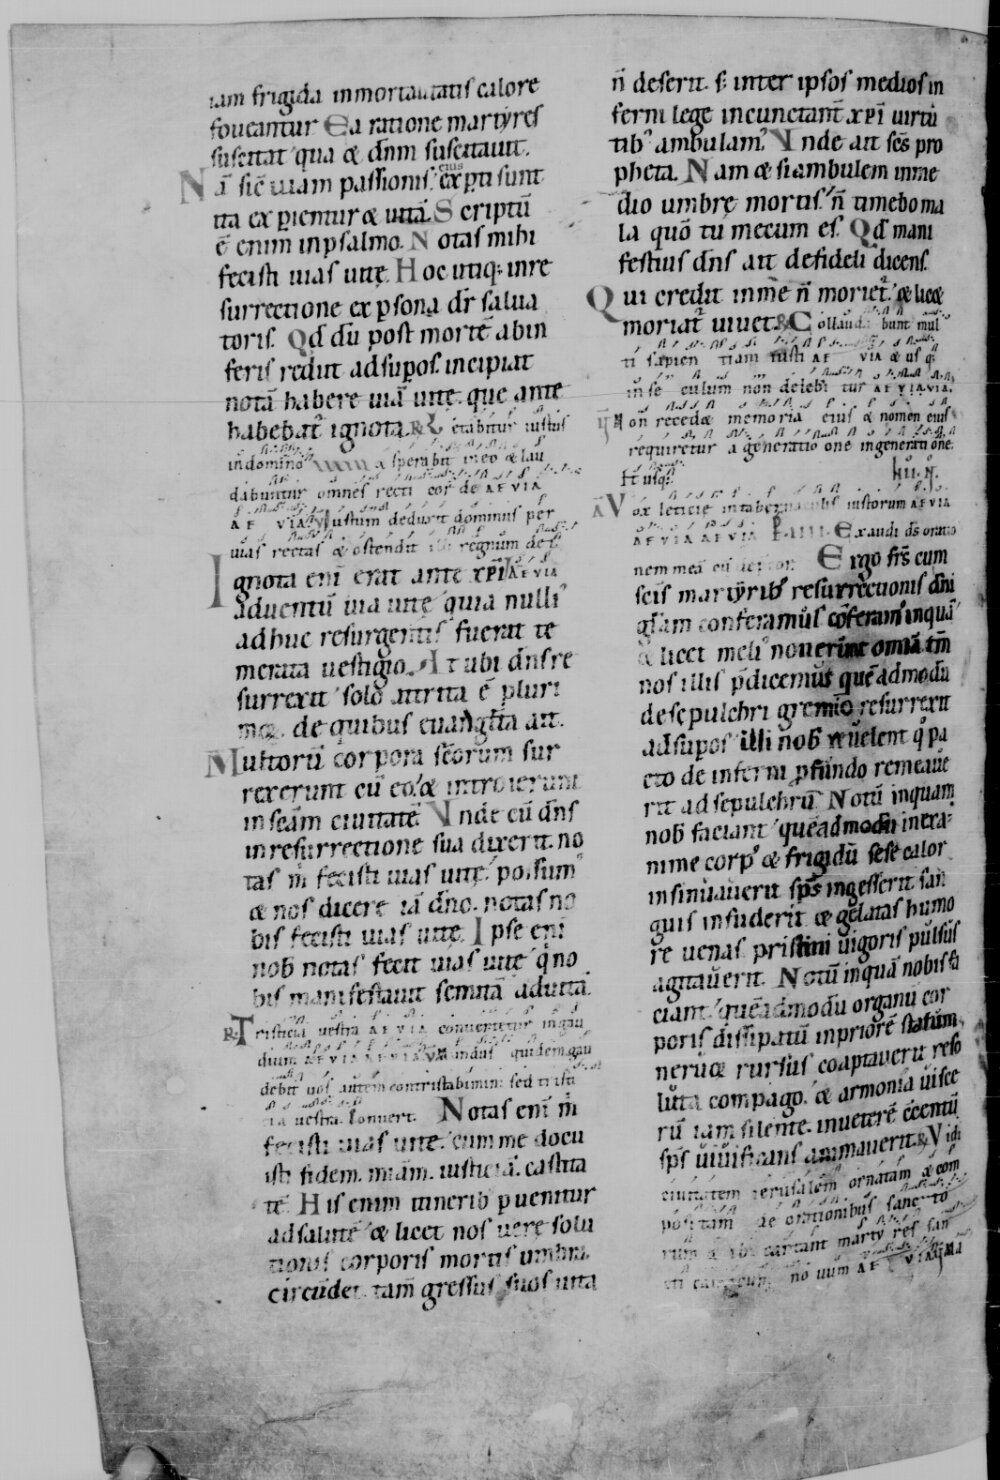 iam frigida inmortalitatis calore
foveantur Ea ratione martyres
suscitat qua & dn̄m suscitavit.
Nā sic̄ viam passionis eius exp̄ti sunt
ita experientur & vitā. Scriptū
ē enim inpsalmo. Notas mihi
fecisti vias vitę. Hoc utiq; inre
surrectione ex p̱sona dr̄ salva
toris. Qd̄ dū post mortē abin
feris redut adsupos. incipiat
notā habere viā vitę. que ante
habebat̄ ignota. R̄ Letabitur iustus
indomino & sperabit ineo & lau
dabuntur omnes recti corde AEVIA
AEVIA V̄ Iustum deduxit dominus per
vias rectas & ostendit illi regnum dei
Ignota enī erat ante xp̄i AEVIA
adventū via vitę quia nulliꝰ
adhuc resurgentis fuerat te
merata vestigio. At ubi dn̄s re
surrexit solo attrita ē pluri
moꝝ. de quibus evanḡlta ait.
Multorū corpora sc̄orum sur
rexerunt cū eo. & introierunt
insc̄am civitatē Unde cū dn̄s
inresurrectione sua dixerit. no
tas m̄ fecisti vias vitę. possumꝰ
& nos dicere iā dn̄o. notas no
bis fecisti vias vitę. Ipse enī
nob̄ notas fecit vias vitę q̄ no
bis manifestavit semitā advitā.
R̄ Tristicia vestra AEVIA convertetur ingau
dium AEVIA AEVIA V̄ Mundus quidem gau
debit vos autem contristabimini sed tristi
cia vestra. Convert. Notas enī m̄
fecisti vias vitę. cum me docu
isti fidem. miam. iusticiā. castita
tē. His enim itinerib̄ pvenitur
adsalutē & licet nos verę solu
tionis corporis mortis umbra
circūdet. tam̄ gressus suos vita
n̄ deserit. s; inter ipsos medios in
ferni lege incunctant̄ xp̄i virtu
tibꝰ ambulamꝰ. Unde ait sc̄s pro
pheta. Nam & siambulem inme
dio umbrę mortis. n̄ timebo ma
la quō tu mecum es. Qd̄ mani
festius dn̄s ait defideli dicens.
Qui credit inme n̄ moriet̄. & licet
moriat̄ vivet. R̄ Collaudabunt mul
ti sapientiam iusti AEVIA & usq;
inseculum non delebitur AEVIA VIA.
V̄ Non recedæ memoria eius & nomen eius
requiretur ageneratione ingenerationē.
Et usq;. IIII. N̄.
Ā Vox leticie intabernaculis iustorum AEVIA
AEVIA AEVIA P̄. IIII. Exaudi ds̄ oratio
nem meā Ergo frs̄ cum
sc̄is martyrib; resurrectionis dn̄i
gl̄am conferamus cōferamꝰ inquā
& licet meliꝰ noverint omnia tm̄
nos illis p̄dicemus quēadmodū
desepulchri gremio resurrexit
adsupos illi nob̄ revelent q̄ pa
cto de inferni pfundo remeave
rit ad sepulchrū Notū inquam
nob̄ faciant quēadmodū inexa
nime corpꝰ & frigidū sese calor
insinuaverit sps̄ ingesserit san
guis insuderit & gelatas humo
re venas pristini vigoris pulsus
agitaverit. Notū inquā nobis fa
ciant quēadmodū organū cor
poris dissipatū inpriorē statum
nervoꝝ rursus coaptaverit reso
luta compago. & armonia visce
rū iam silente. inveterē ccentū
sps̄ vivificans animaverit. R̄ Vidi
civitatem ierusalem ornatam & com
positam de orationibus sancto
rum & ibi cantant martyres san
cti canticum novum AEVIA V̄ Ma